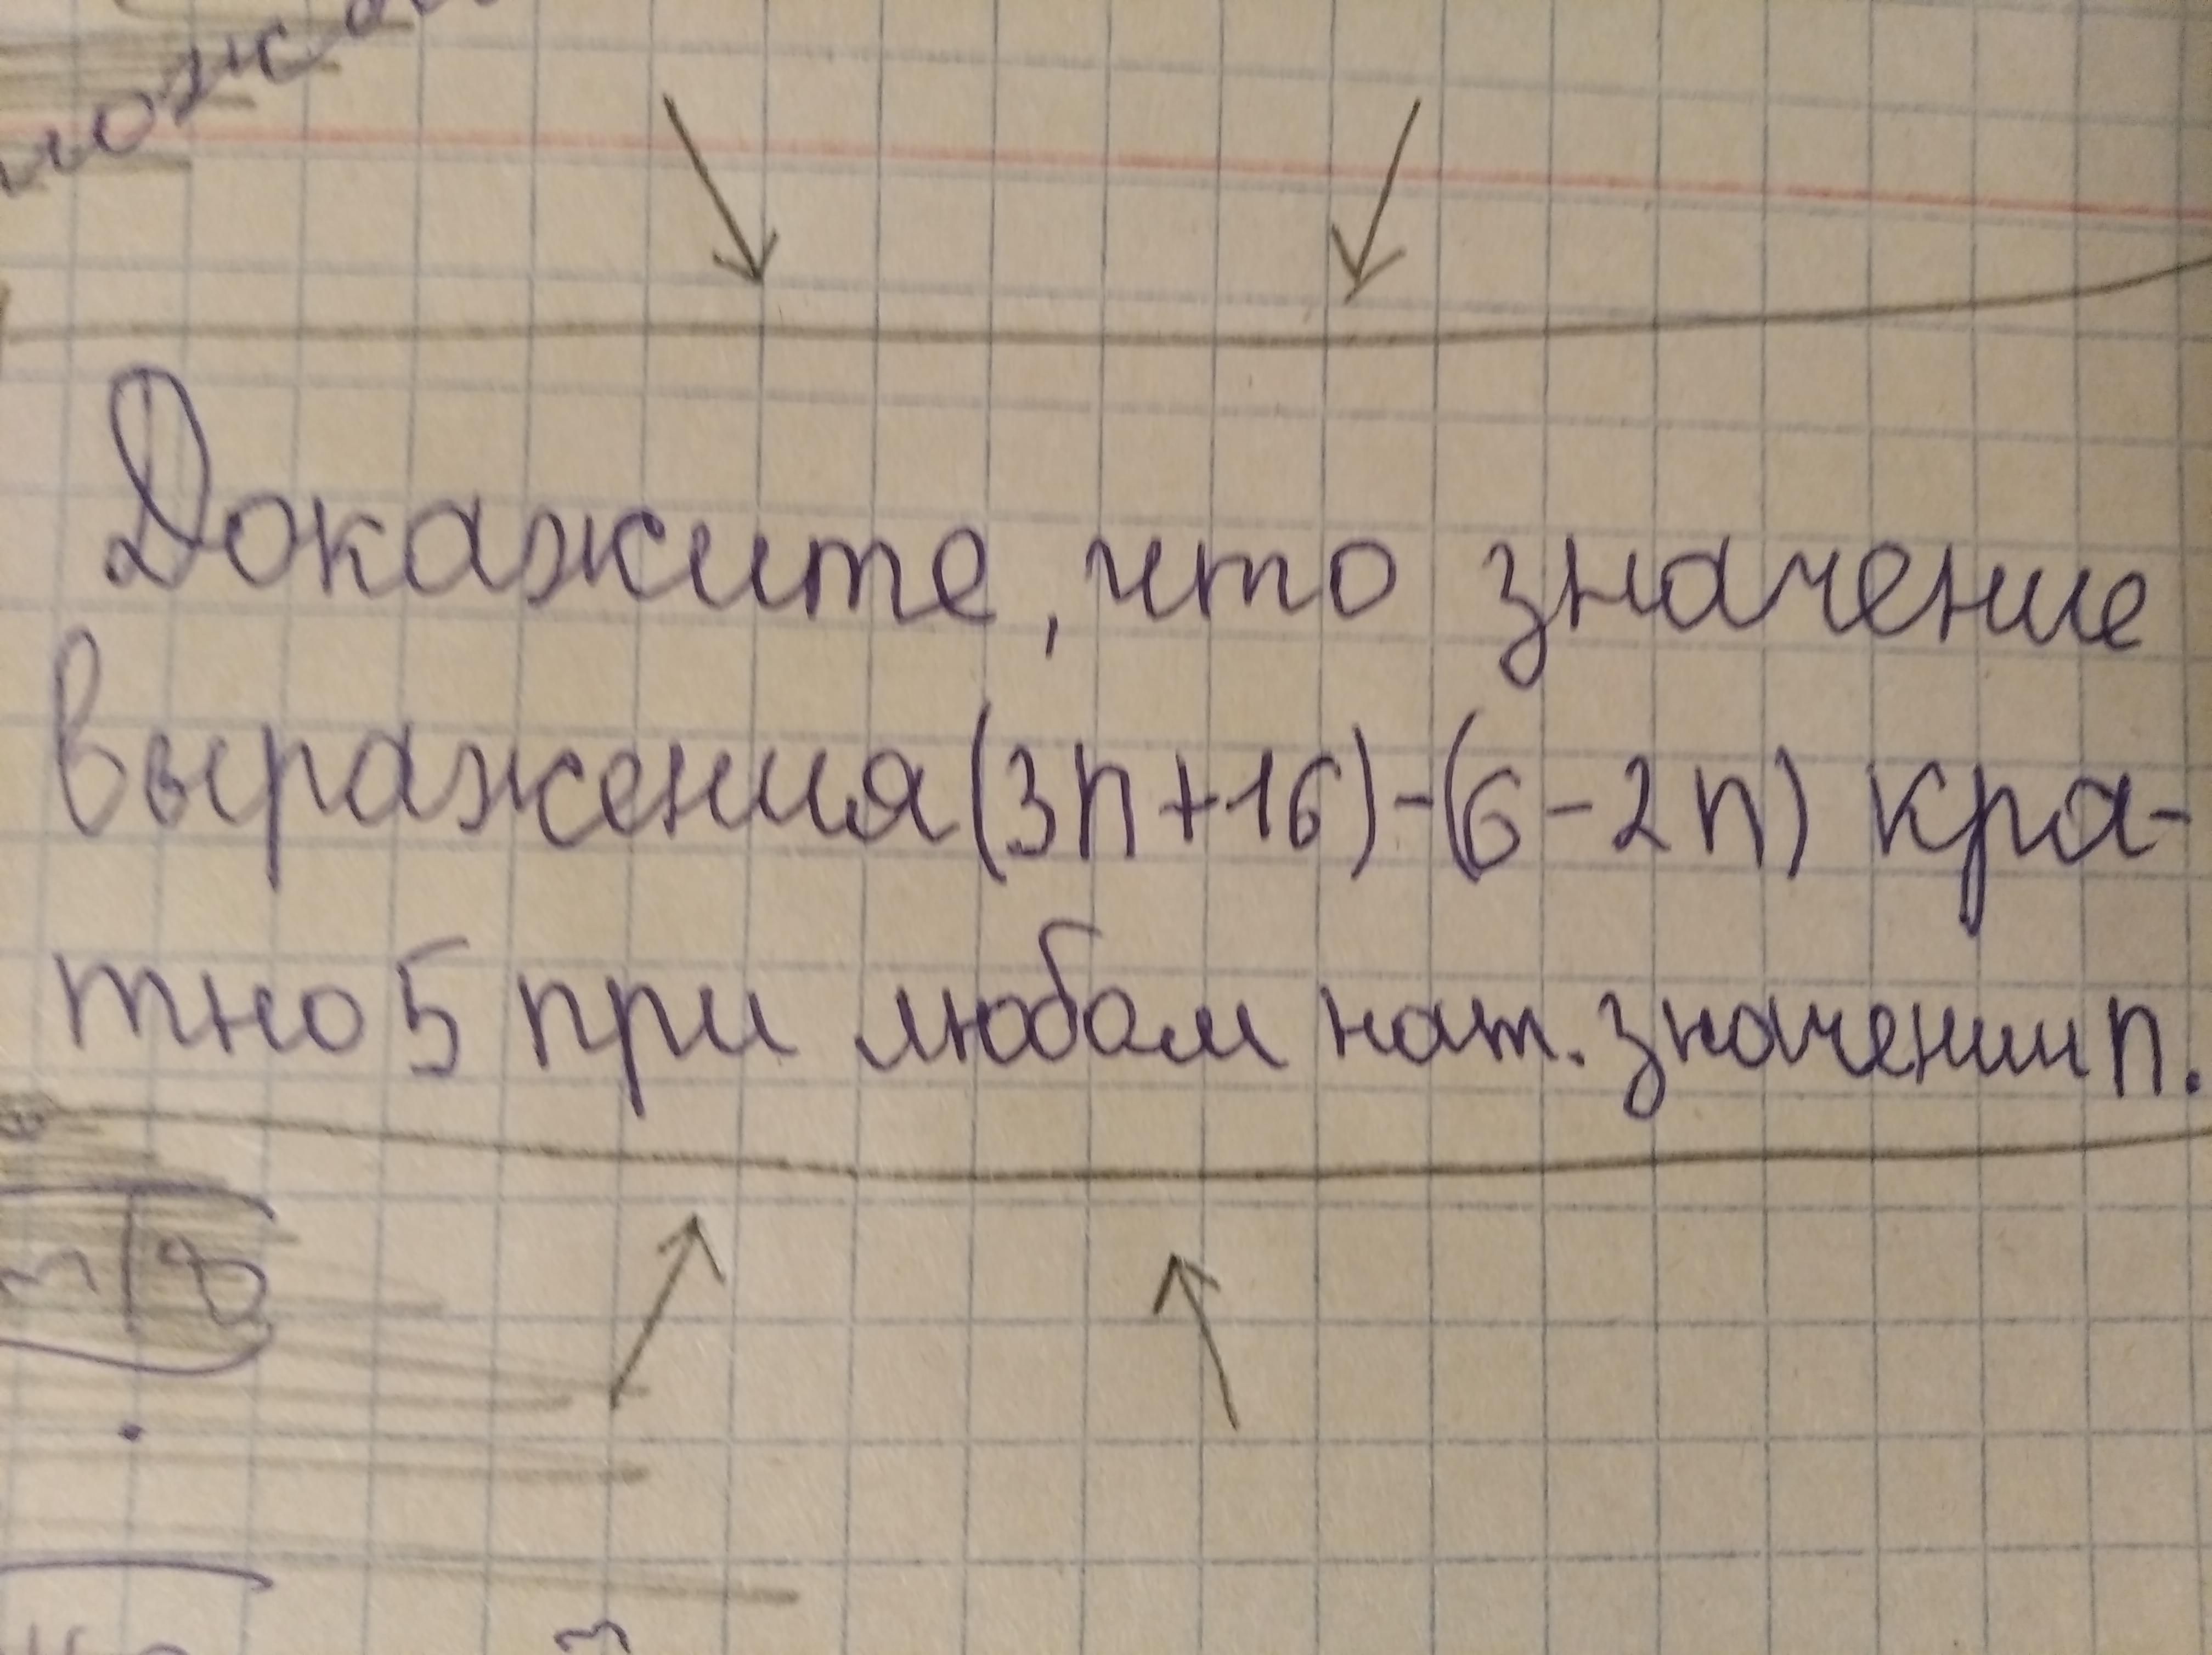 Докажите, что значение
выражения (3n+16)-(6-2n) кра-
тно 5 при любом нат. значении n.